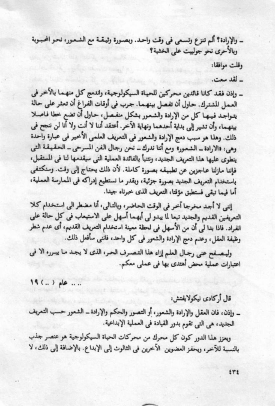 ـ والإرادة؟ ألم تنزع وتسعى في وقت واحد. وبصورة وثيقة مع الشعور، نحو المحبوبة
وبالأحرى نحو جولييت على الخشبة؟
وقلت موافقا:
ـ لقد سعت.
ـ وإذن فقد كانا قائدين محركين للحياة السيكولوجية، واندمج كل منهما بالآخر في
العمل المشترك. حاول أن تفصل بينهما. جرب في أوقات الفراغ أن تعثر على حالة
يتواجد فيها كل من الإرادة والشعور بشكل منفصل، حاول أن تضع خطا فاصلا
بينهما، وأن تشير إلى بداية أحدهما ونهاية الآخر. أعتقد أننا لا أنت ولا أنا لن ننجح في
ذلك. وهذا هو سبب دمج الإرادة والشعور في التعريف العلمي الأخير في عبارة واحدة
وهي: «الإرادة ـ الشعور» ومع أننا ندرك ـ نحن رجال الفن المسرحي ـ الحقيقة التي
ينطوي عليها هذا التعريف الجديد، ونتنبأ بالفائدة العملية التي سيقدمها لنا في المستقبل،
فإننا مازلنا عاجزين عن تطبيقه بصورة كاملة. لأن ذلك يحتاج إلى وقت. وسنكتفي
باستخدام التعريف الجديد بصورة جزئية، وبقدر ما نستطيع إدراكه في الممارسة العملية،
أما فيما تبقى فنستطيع مؤقتا، التعريف الذي خبرناه جيدا.
إنني لا أجد مخرجا آخر في الوقت الحاضر، وبالتالي، أنا مضطر الى استخدام كلا
التعريفين القديم والجديد تبعا لما يبدو لي أيهما أسهل على الاستيعاب في كل حالة على
انفراد. فإذا بدا لي أن من الأسهل في لحظة معينة استخدام التعريف القديم، أي عدم شطر
وظيفة العقل، وعدم دمج الإرادة والشعور في كل واحد، فانني سأفعل ذلك.
وليصفح عني رجال العلم إزاء هذا التصرف الحر، الذي لا يجد ما يبرره إلا في
اعتبارات عملية محض أهتدي بها في عملي معكم.
.... عام ( .. ) ١٩
قال أركادي نيكولايفتش:
ـ وإذن، فان العقل والإرادة والشعور، أو التصور والحكم والإرادة ـ الشعور حسب التعريف
الجديد، هي التي تقوم بدور القيادة في العملية الإبداعية.
ويعزز هذا الدور كون كل محرك من محركات الحياة السيكولوجية هو عنصر جذب
بالنسبة للآخر، ويحفز العضوين الآخرين في الثالوث إلى الإبداع. بالإضافة إلى ذلك، لا
٤٣٤